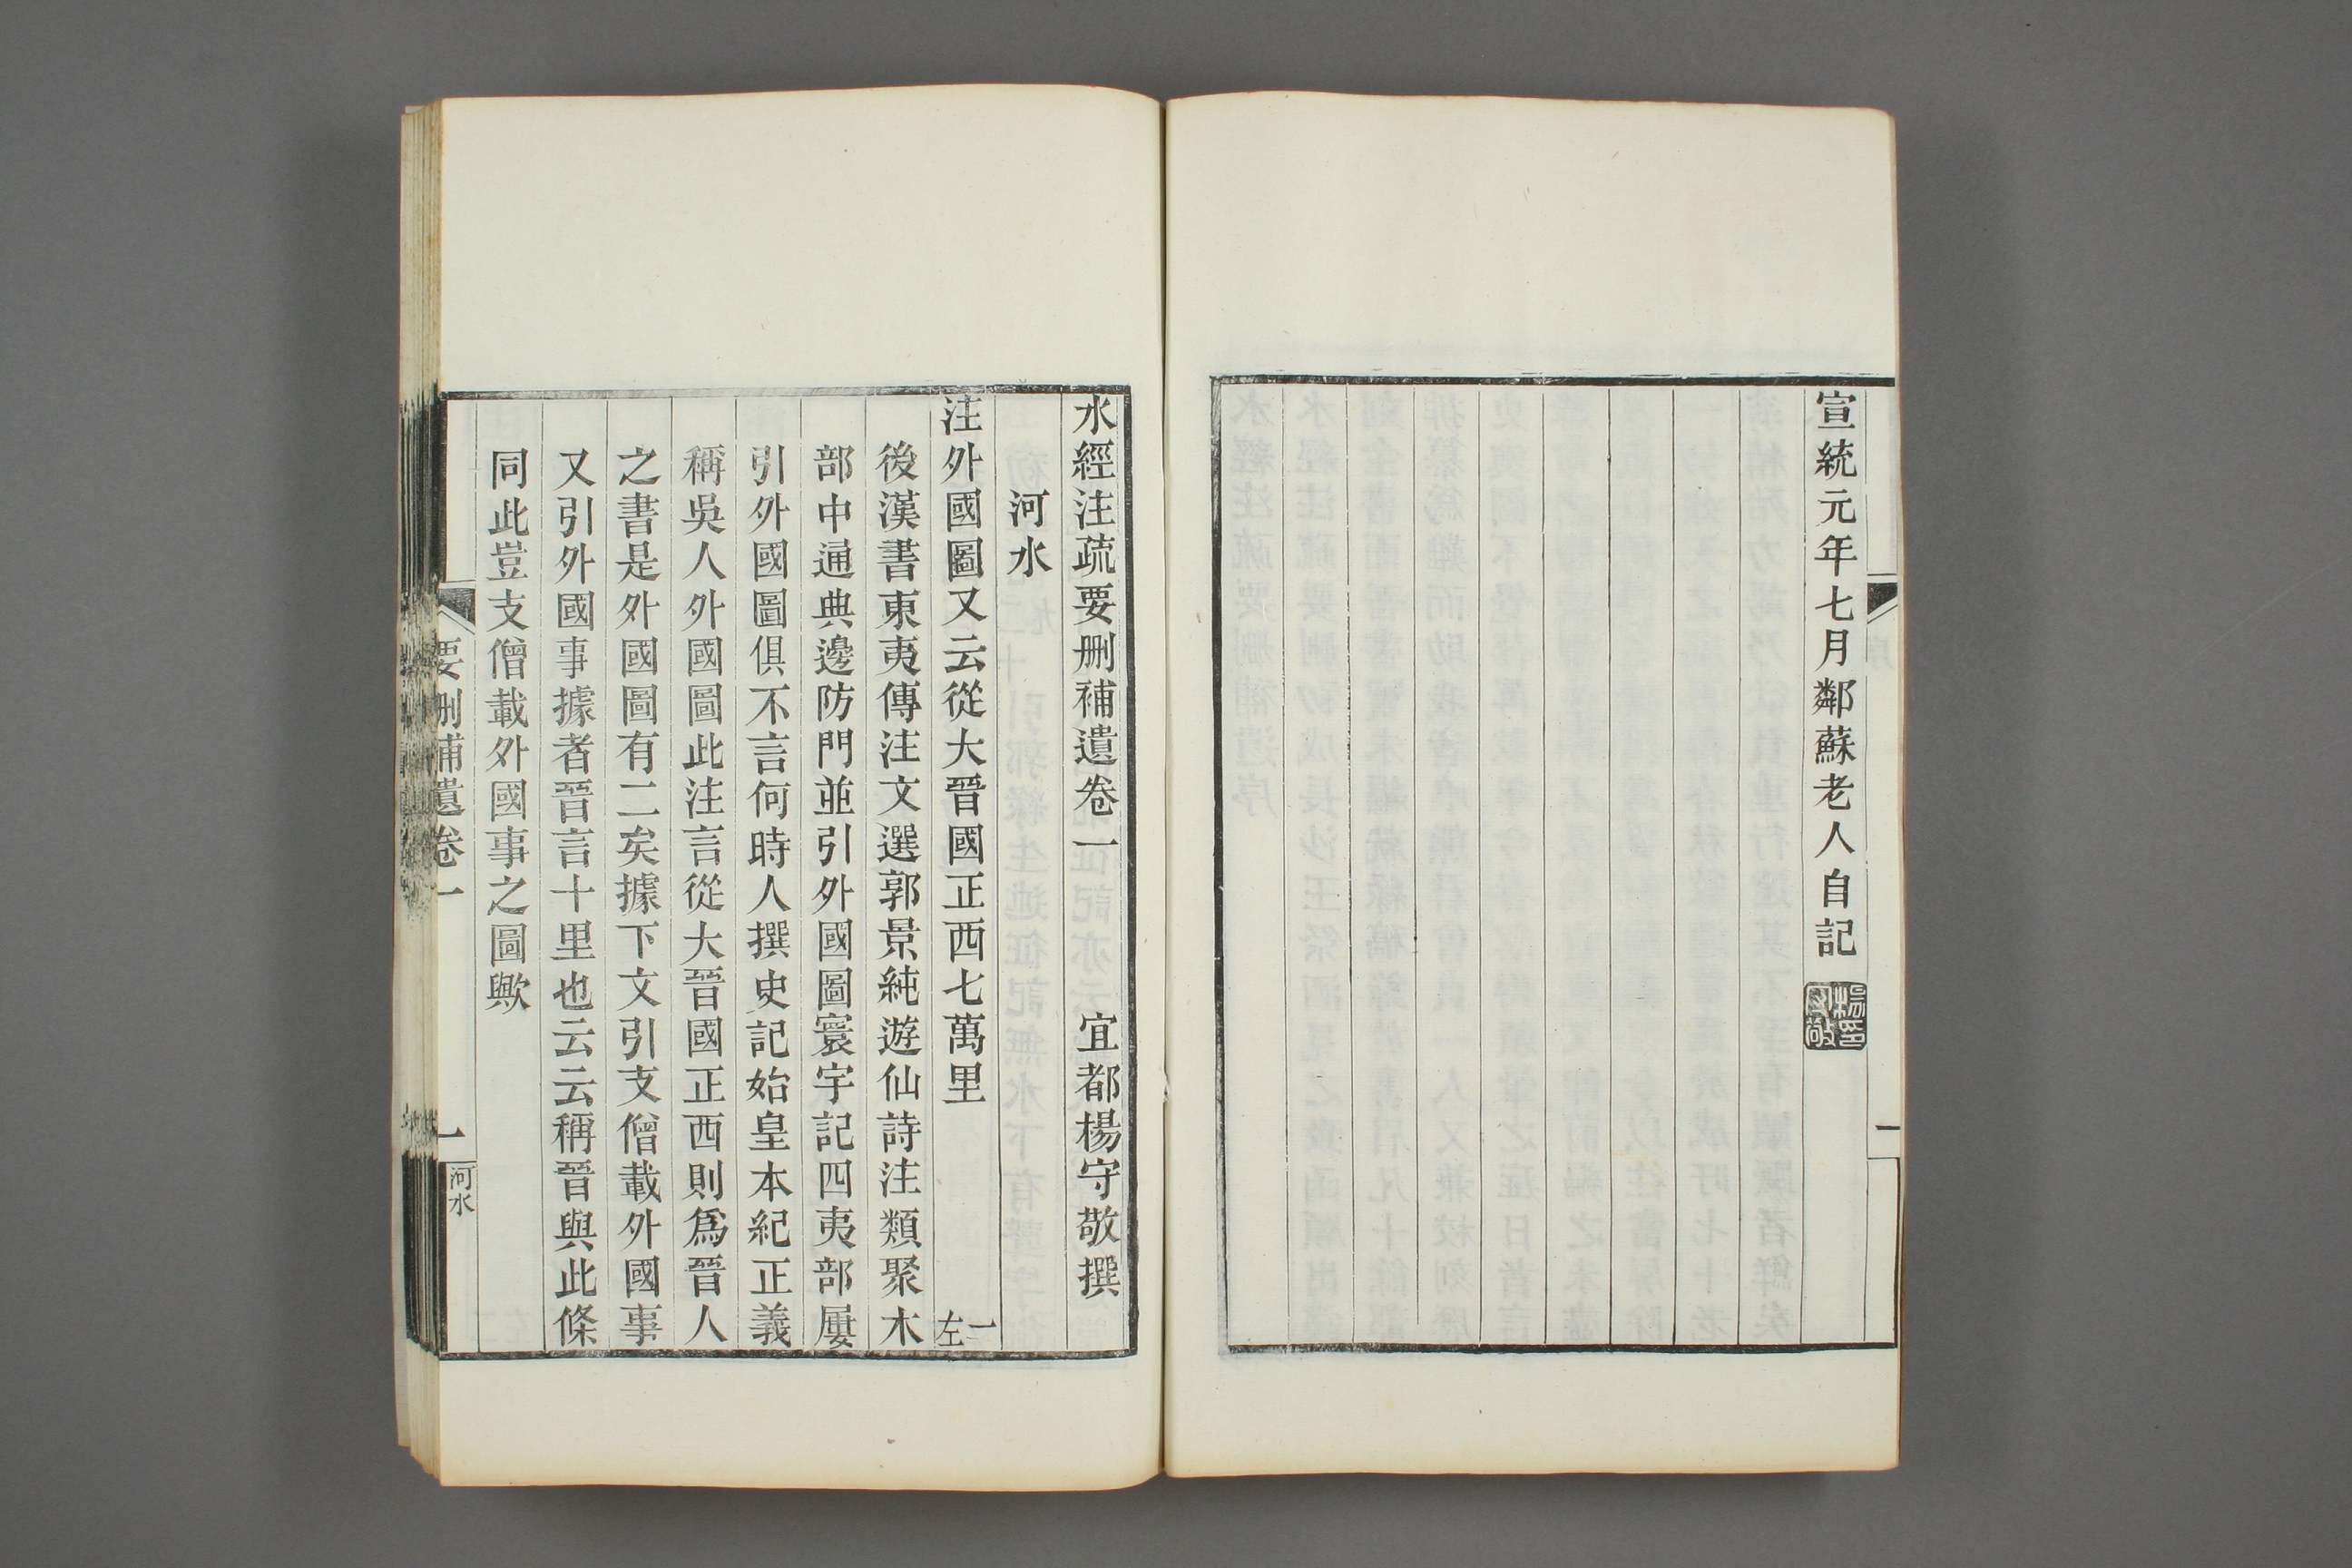 宣統元年七月鄰蘇老人自記
楊守敬印
一
水經注疏要刪補遺卷一 宜都楊守敬撰
河水
注外國圖又云從大晉國正西七萬里 一左
後漢書東夷傳注文選郭景純遊仙詩注類聚木
部中通典邊防門並引外國圖寰宇記四夷部屢
引外國圖俱不言何時人撰史記始皇本紀正義
稱吳人外國圖此注言從大晉國正西則爲晉人
之書是外國圖有二矣據下文引支僧載外國事
又引外國事據者晉言十里也云云稱晉與此條
同此豈支僧載外國事之圖歟
要刪補遺卷一
一
河水